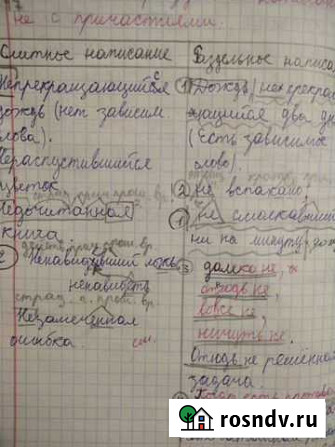 не с причастиями.
Слитное написание
Непрекращающийся
дождь (нет зависим
слова).
Нераспустившийся
цветок
Недочитанная
книга
Ненавидивший ложь
ненавидеть
страд. п. прош. вр.
Незамеченная
ошибка.
Раздельное написа
① Дождь, не прекра
щающийся два дн
(Есть зависимое
слово)
② не вспахано
не смолкавший
ни на минуту
③ далеко не,
отнюдь не,
вовсе не,
ничуть не.
Отнюдь не решённая
задача.
rosndv.ru